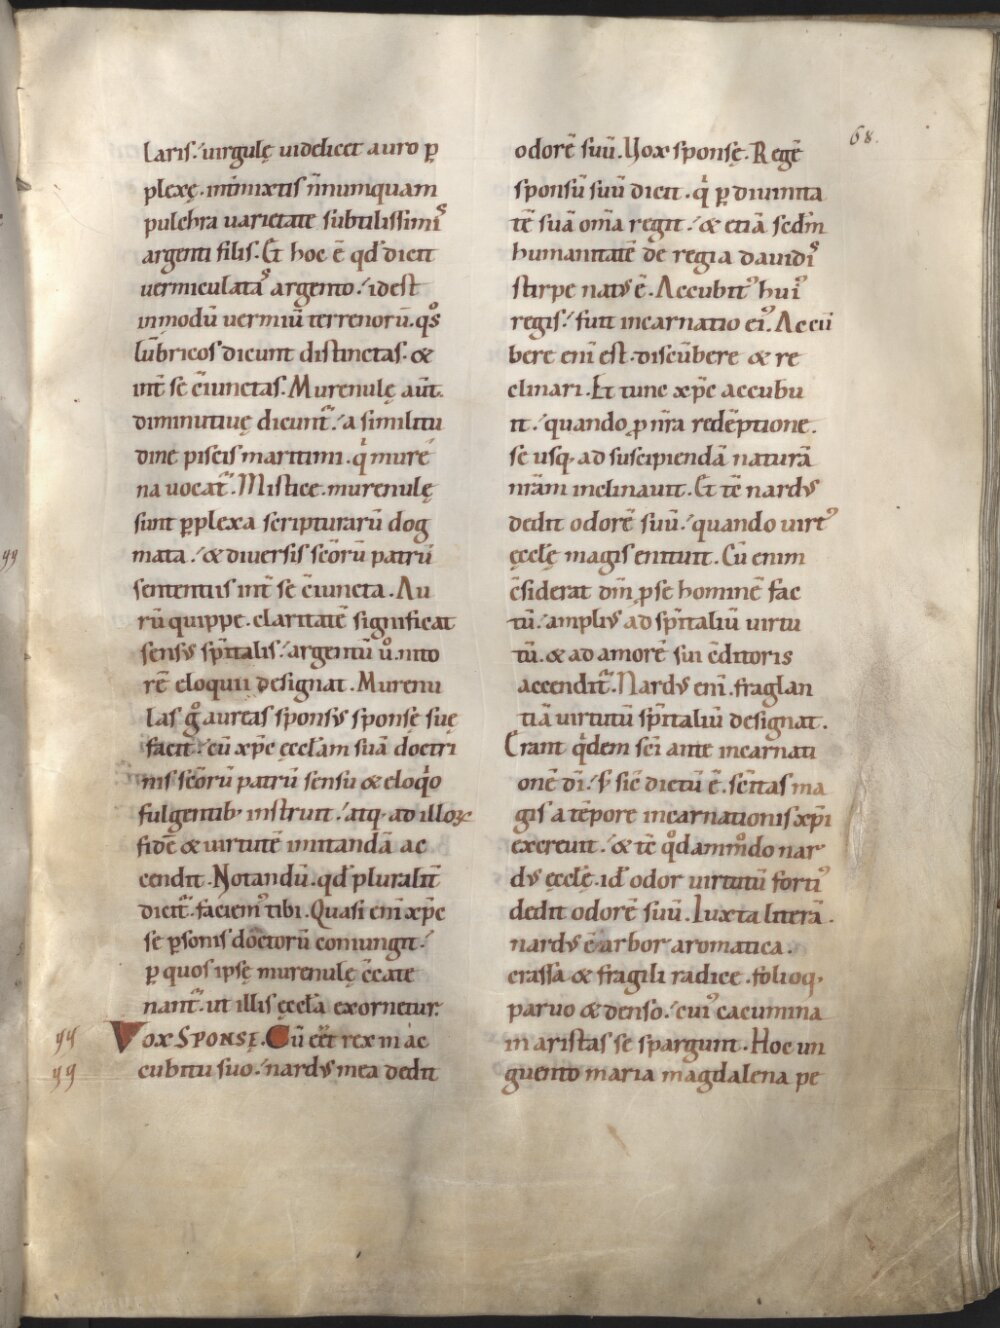 68.
laris.' uirgulę uidelicet auro ꝑ
plexę. int̄mixtis n̄numquam
pulchra uarietate subtilissimiˀ
argenti filis. Et hoc ē qd̄ dicit
uermiculataˀ argento.' idest
inmodū uermiū terrenorū. qͦs
lūbricos dicunt distinctas. &
int̄ se c̄iunctas. Murenulę aūt.
diminutiuę dicunt̃.' a similitu
dine piscis maritimi. qͥ murę
na uocat̃. Mistice. murenulę
sunt ꝑplexa scripturarū dog
mata.' & diuersis sc̄orū patrū
sententiis int̄ se c̄iuncta. Au
rū quippe. claritatē significat
sensꝰ sp̄italis.' argentū ů. nito
rē eloquii designat. Murenu
las gͦ aureas sponsꝰ sponsę suę
facit.' cū xp̄c ęccl̄am suā doctri
nis sc̄orū patrū sensu & eloqͥo
fulgentibꝫ instruit.' atqꝫ ad illoꝝ
fidē & uirtutē imitandā ac
cendit. Notandū. qd̄ pluralit̄
dicit̃. faciemꝰ tibi. Quasi eni̅ xp̄c
se ꝑsonis doctorū comungit.'
ꝑ quos ipsę murenulę c̄cate
nant̃. ut illis ęccl̄a exornetur.
99
99
99
Vox Sponsę. Cū eēt rex in ac
cubitu suo.' nardꝰ mea dedit
odorē suū. Vox sponsę. Regē
sponsū suū dicit. qͥ ꝑ diuinita
tē suā om̄a regit.' & etiā scd̄m
humanitatē de regia dauidiˀ
stirpe natꝰ ē. Accubitꝰ huiˀ
regis.' fuit incarnatio eiꝰ. Accū
bere eni̅ est. discūbere & re
clinari. Et tunc xp̄c accubu
it.' quando ꝓ n̄ra redēptione.
se usqꝫ ad suscipiendā naturā
nr̄am inclinauit. Et tē nardꝰ
dedit odorē suū.' quando uirtꝰ
ęcclę̄ magis enituit. Cū enim
c̄siderat dn̄m ꝓ se hominē fac
tū.' ampliꝰ ad sp̄italiū uirtu
tū. & ad amorē sui c̄ditoris
accendit̃. Nardꝰ eni̅. fraglan
tiā uirtutū sp̄italiū designat.
Erant qͥdem sc̄i ante incarnati
onē dn̄i.' s; sic̄ dictū ē. sc̄itas ma
gis a tēpore incarnationis xp̄i
excreuit.' & tē qͦdāmͦdo nar
dꝰ ęcclę̄. id̄ odor uirtutū fortiˀ
dedit odorē suū. Iuxta literā.
nardꝰ ē arbor aromatica.
crassa & fragili radice. folioqꝫ
paruo & denso.' cuiꝰ cacumina
in aristas se spargunt. Hoc un
guento maria magdalena pe